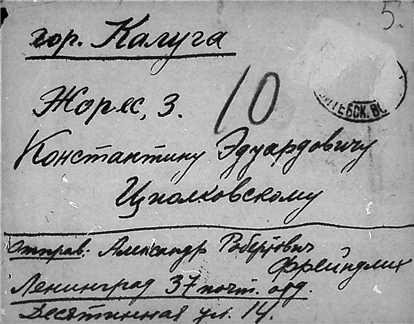 5.
гор. Калуга
10
Жорес, 3.
Константину Эдуардовичу
Циолковскому
Отправ. Александр Робертович
Фрейндлих
Ленинград 37 почт. отд.
Десятинная ул. 14.